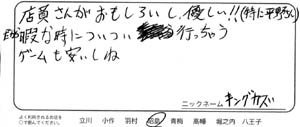 店員さんがおもしろいし、優しい!!(特に平野さん)
暇な時についつい行っちゃう
ゲームも安いしね
ニックネーム キングカズい
よく利用されるお店を○で囲んでください。 立川 小作 羽村 昭島 青梅 高幡 福生 之内 八王子